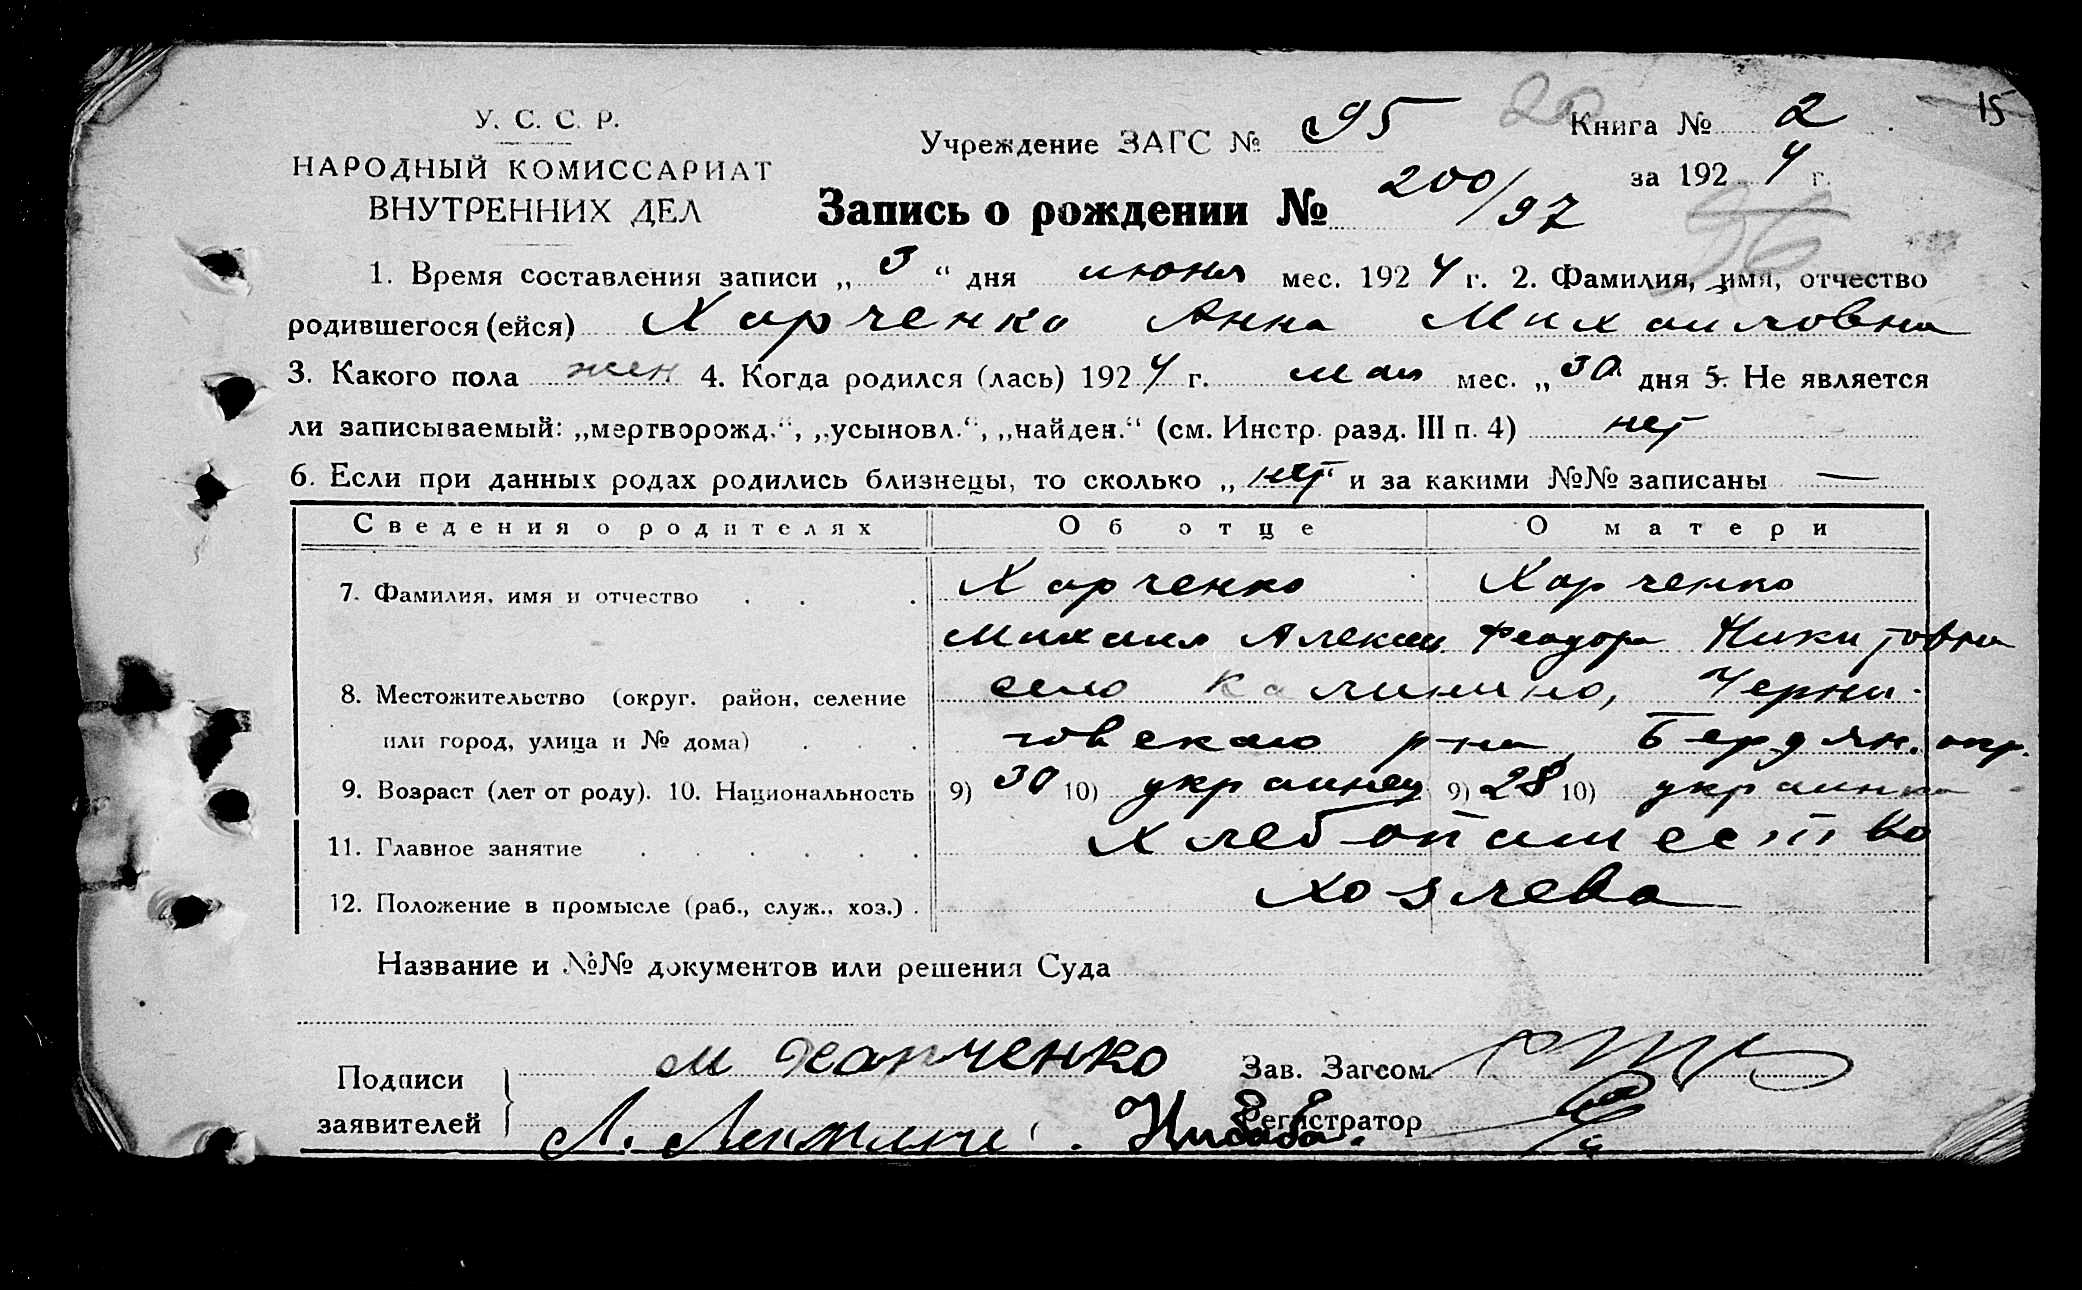 15
У. С. С. Р.
НАРОДНЫЙ КОМИССАРИАТ
ВНУТРЕННИХ ДЕЛ
Учреждение ЗАГС № 95 20 Книга № 2
за 1924 г.
Запись о рождении № 200/97
56
1. Время составления записи „ 3 “ дня июня мес. 1924 г. 2. Фамилия, имя, отчество
родившегося (ейся) Харченко Анна Михаиловна
3. Какого пола жен 4. Когда родился (лась) 1924 г. мая мес. „ 30 дня 5. Не является
ли записываемый: „мертворожд.“, „усыновл.“, „найден.“ (см. Инстр. разд. III п. 4) нет
6. Если при данных родах родились близнецы, то сколько „ нет “ и за какими №№ записаны —
Сведения о родителях Об отце О матери
7. Фамилия, имя и отчество Харченко Харченко
Михаил Алексеев. Феодора Никитовна
8. Местожительство (округ. район, селение село Калинино, Черни-
или город, улица и № дома) говского р-на, Бердян. окр.
9. Возраст (лет от роду). 10. Национальность 9) 30 10) украинец 9) 28 10) украинка
11. Главное занятие Хлебопашество
12. Положение в промысле (раб., служ., хоз.) Хозяева
Название и №№ документов или решения Суда
Подписи
заявителей
М Харченко
Зав. Загсом
Л. Нибаба.
Регистратор